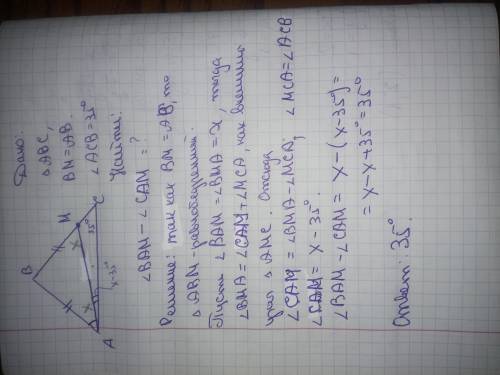 Дано:
△ABC,
BM=AB.
∠ACB=35°
Найти:
∠BAM - ∠CAM = ?
B
M
C
A
x
x
x
35°
x-35°
Решение: так как BM=AB, то
△ABM - равнобедренный.
Пусть ∠BAM=∠BMA=x, тогда
∠BMA=∠CAM+∠MCA, как внешний
угол △AMC. Отсюда
∠CAM=∠BMA-∠MCA; ∠MCA=∠ACB
∠CAM= x-35°.
∠BAM-∠CAM= x-(x-35°)=
=x-x+35°=35°
Ответ: 35°.